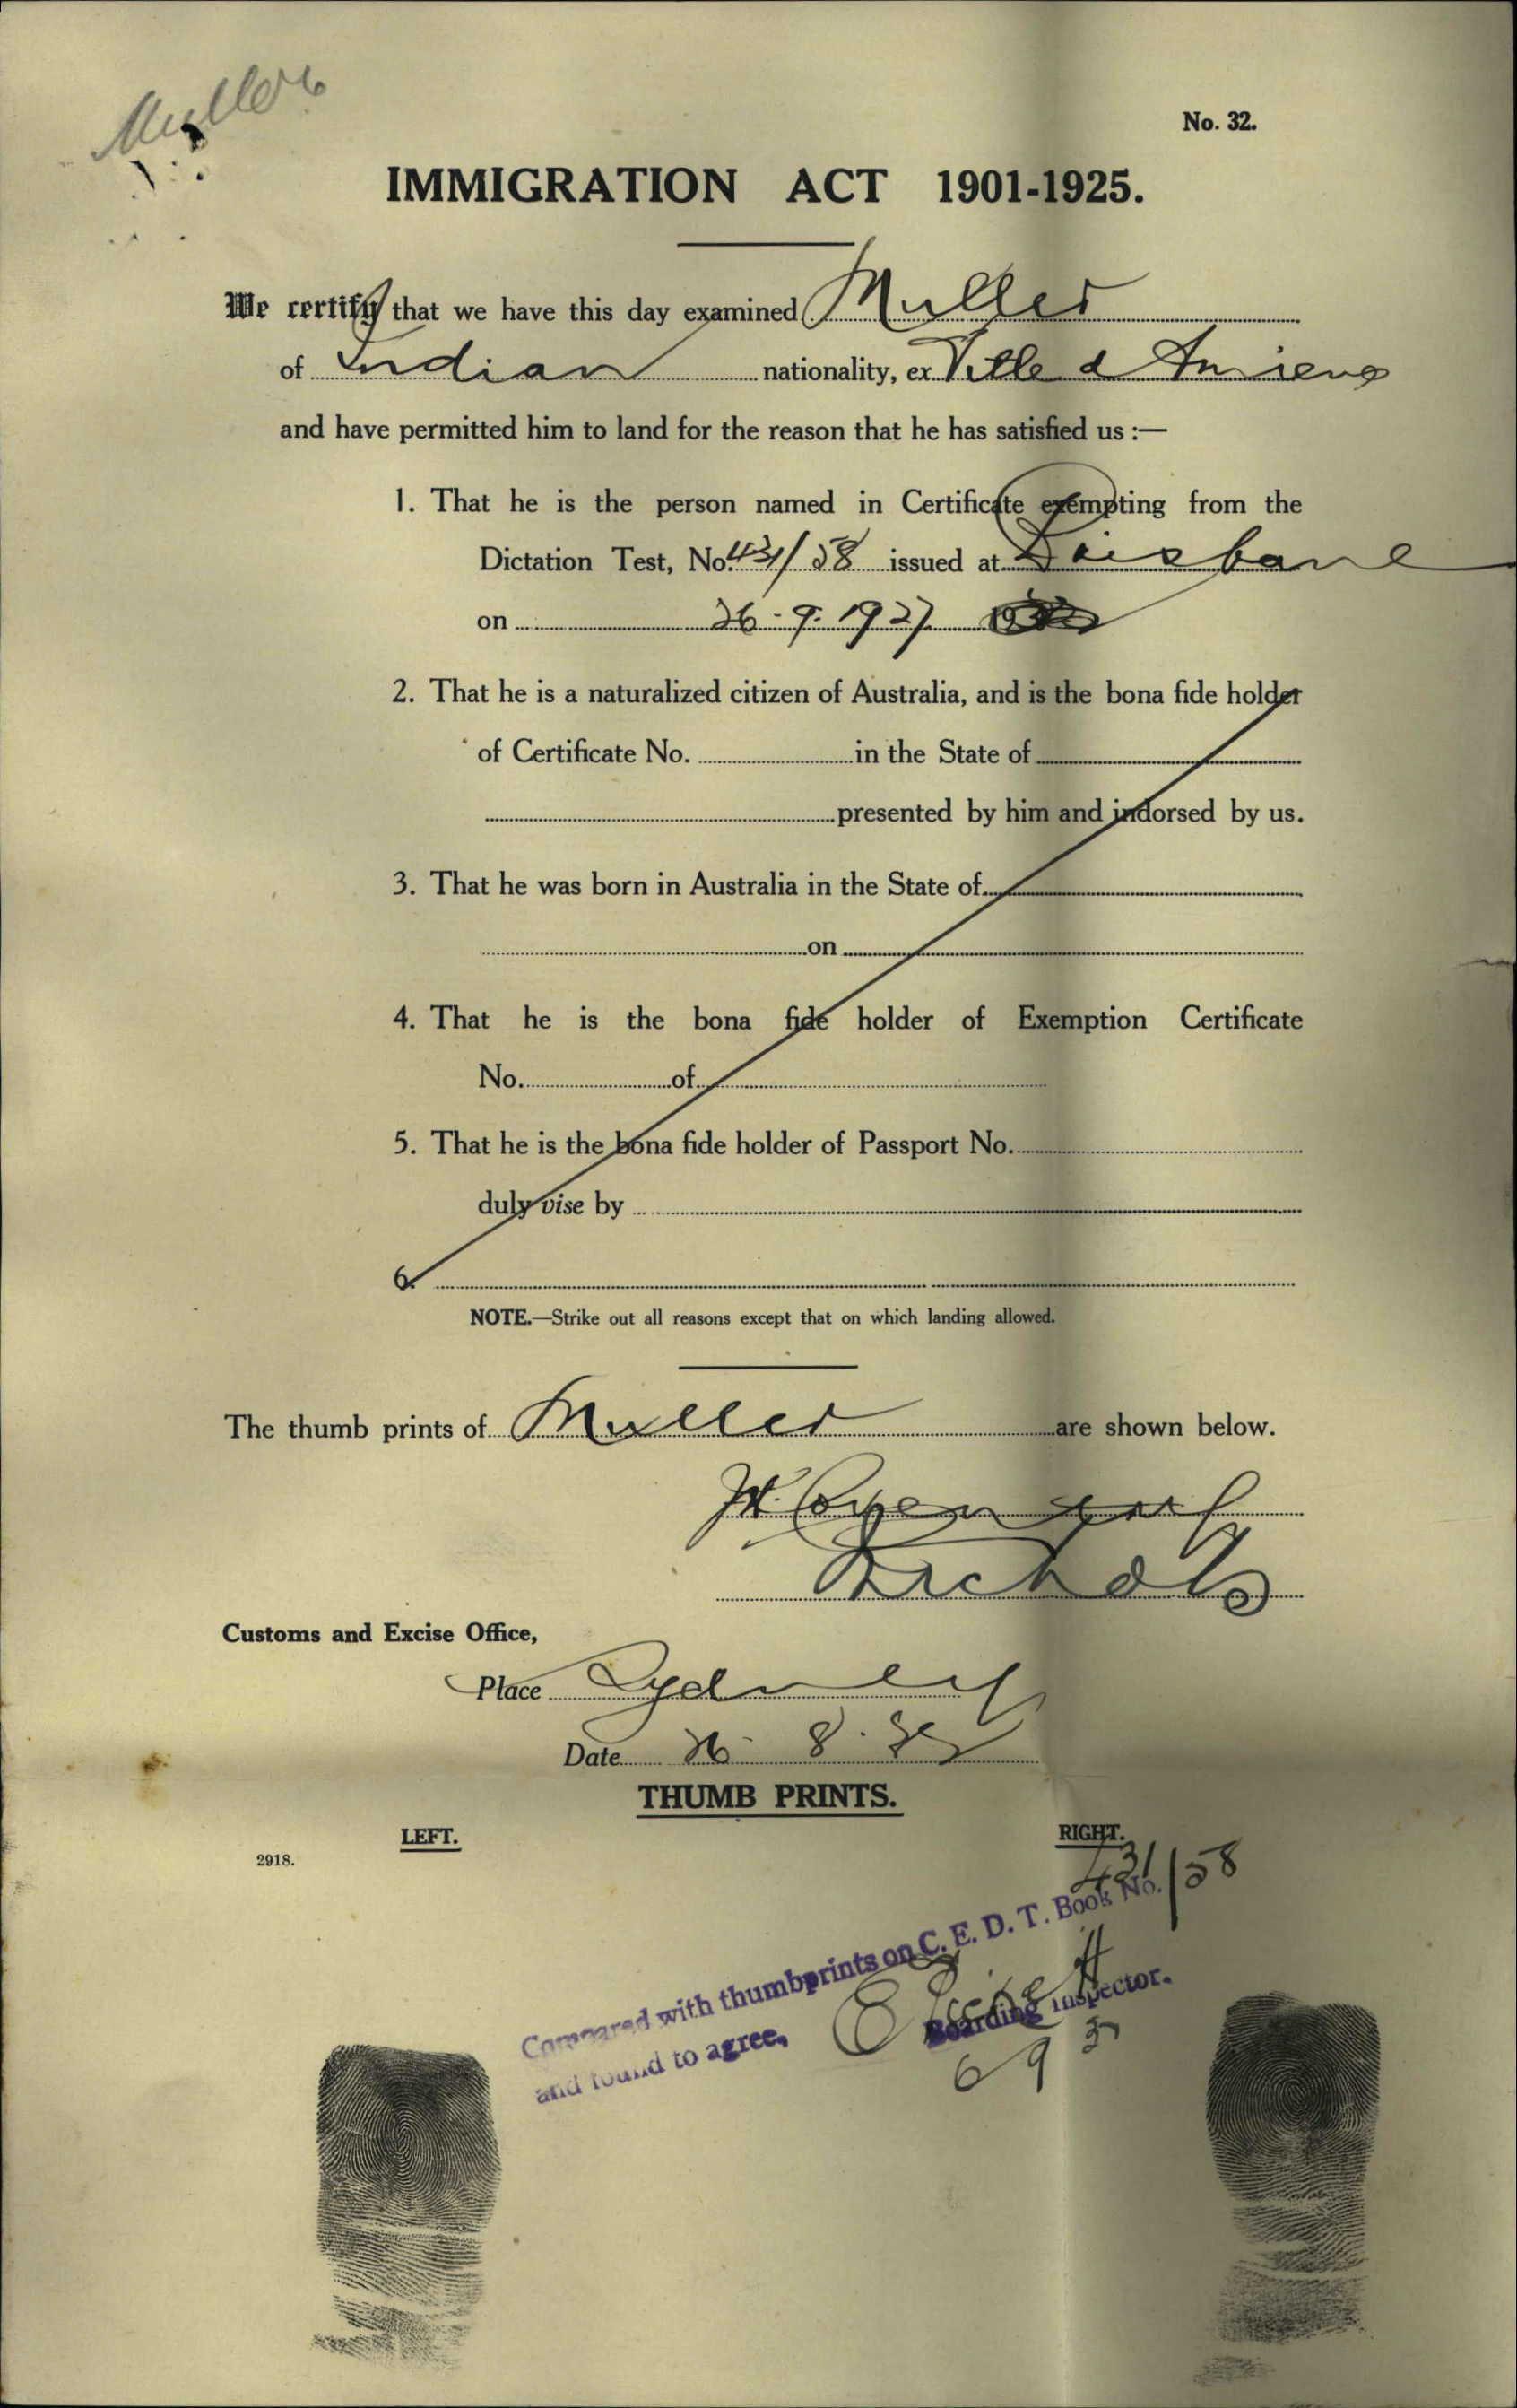 Muller
No. 32.
IMMIGRATION ACT 1901-1925.
We certify that we have this day examined Muller
of Indian nationality, ex Ville d Amiens
and have permitted him to land for the reason that he has satisfied us :—
1. That he is the person named in Certificate exempting from the
Dictation Test, No. 431/58 issued at Brisbane
on 26-9-1927
2. That he is a naturalized citizen of Australia, and is the bona fide holder
of Certificate No. in the State of
presented by him and indorsed by us.
3. That he was born in Australia in the State of
on
4. That he is the bona fide holder of Exemption Certificate
No. of
5. That he is the bona fide holder of Passport No.
duly vise by
6.
NOTE.—Strike out all reasons except that on which landing allowed.
The thumb prints of Muller are shown below.
Nichols
Customs and Excise Office,
Place Sydney
Date 26. 8.
THUMB PRINTS.
LEFT. RIGHT.
2918.
431/58
Compared with thumbprints on C. E. D. T. Book No.
and found to agree,
Boarding Inspector.
6 9